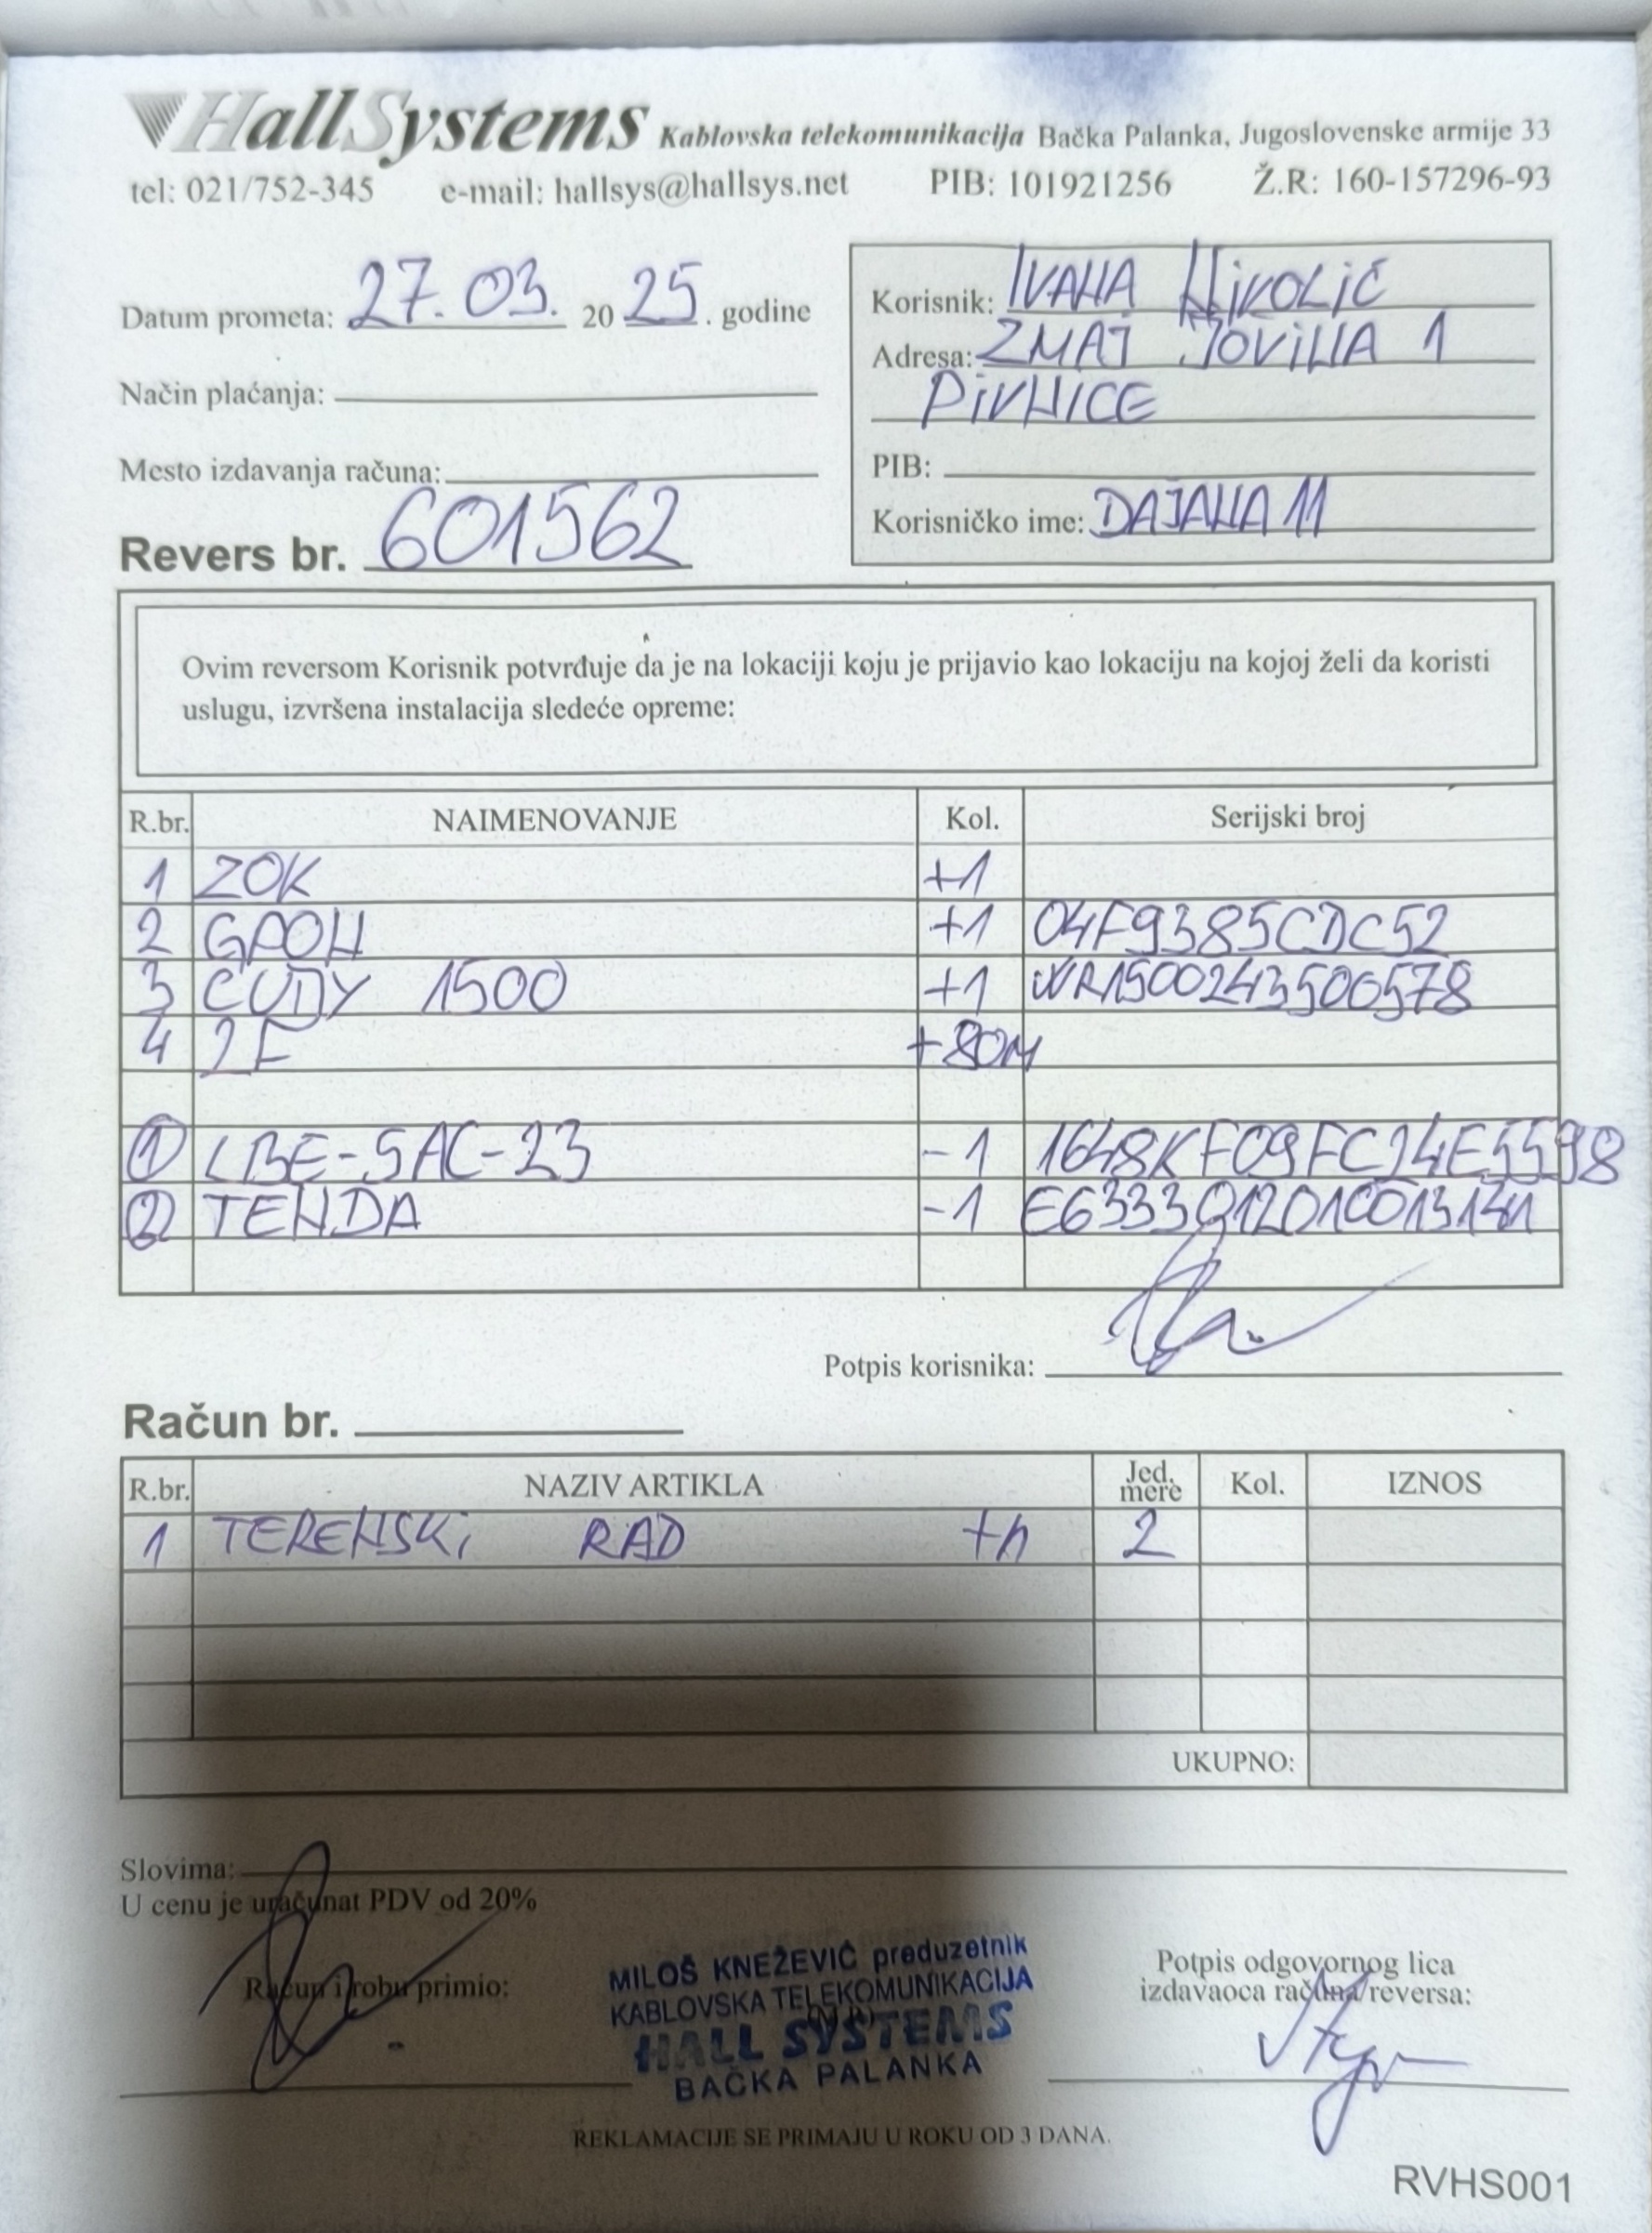 HallSystems Kablovska telekomunikacija Bačka Palanka, Jugoslovenske armije 33
tel: 021/752-345 e-mail: hallsys@hallsys.net PIB: 101921256 Ž.R: 160-157296-93
Datum prometa: 27.03. 2025. godine
Način plaćanja:
Mesto izdavanja računa:
Revers br. 601562
Korisnik: IVANA NIKOLIĆ
Adresa: ZMAJ JOVINA 1
PIVNICE
PIB:
Korisničko ime: DAJANA 11
Ovim reversom Korisnik potvrđuje da je na lokaciji koju je prijavio kao lokaciju na kojoj želi da koristi
uslugu, izvršena instalacija sledeće opreme:
R.br. NAIMENOVANJE Kol. Serijski broj
1 ZOK +1
2 GPON +1 04F9385CDC52
3 CUDY 1500 +1 WR1500243500578
4 2F +80M
1 LBE-5AC-23 -1 1648KF09FC24E5598
2 TENDA -1
Potpis korisnika:
Račun br.
R.br. NAZIV ARTIKLA Jed. mere Kol. IZNOS
1 TERENSKI RAD +h 2
UKUPNO:
Slovima:
U cenu je uračunat PDV od 20%
Račun i robu primio:
MILOŠ KNEŽEVIĆ preduzetnik
KABLOVSKA TELEKOMUNIKACIJA
HALL SYSTEMS
BAČKA PALANKA
Potpis odgovornog lica
izdavaoca računa/reversa:
REKLAMACIJE SE PRIMAJU U ROKU OD 3 DANA.
RVHS001